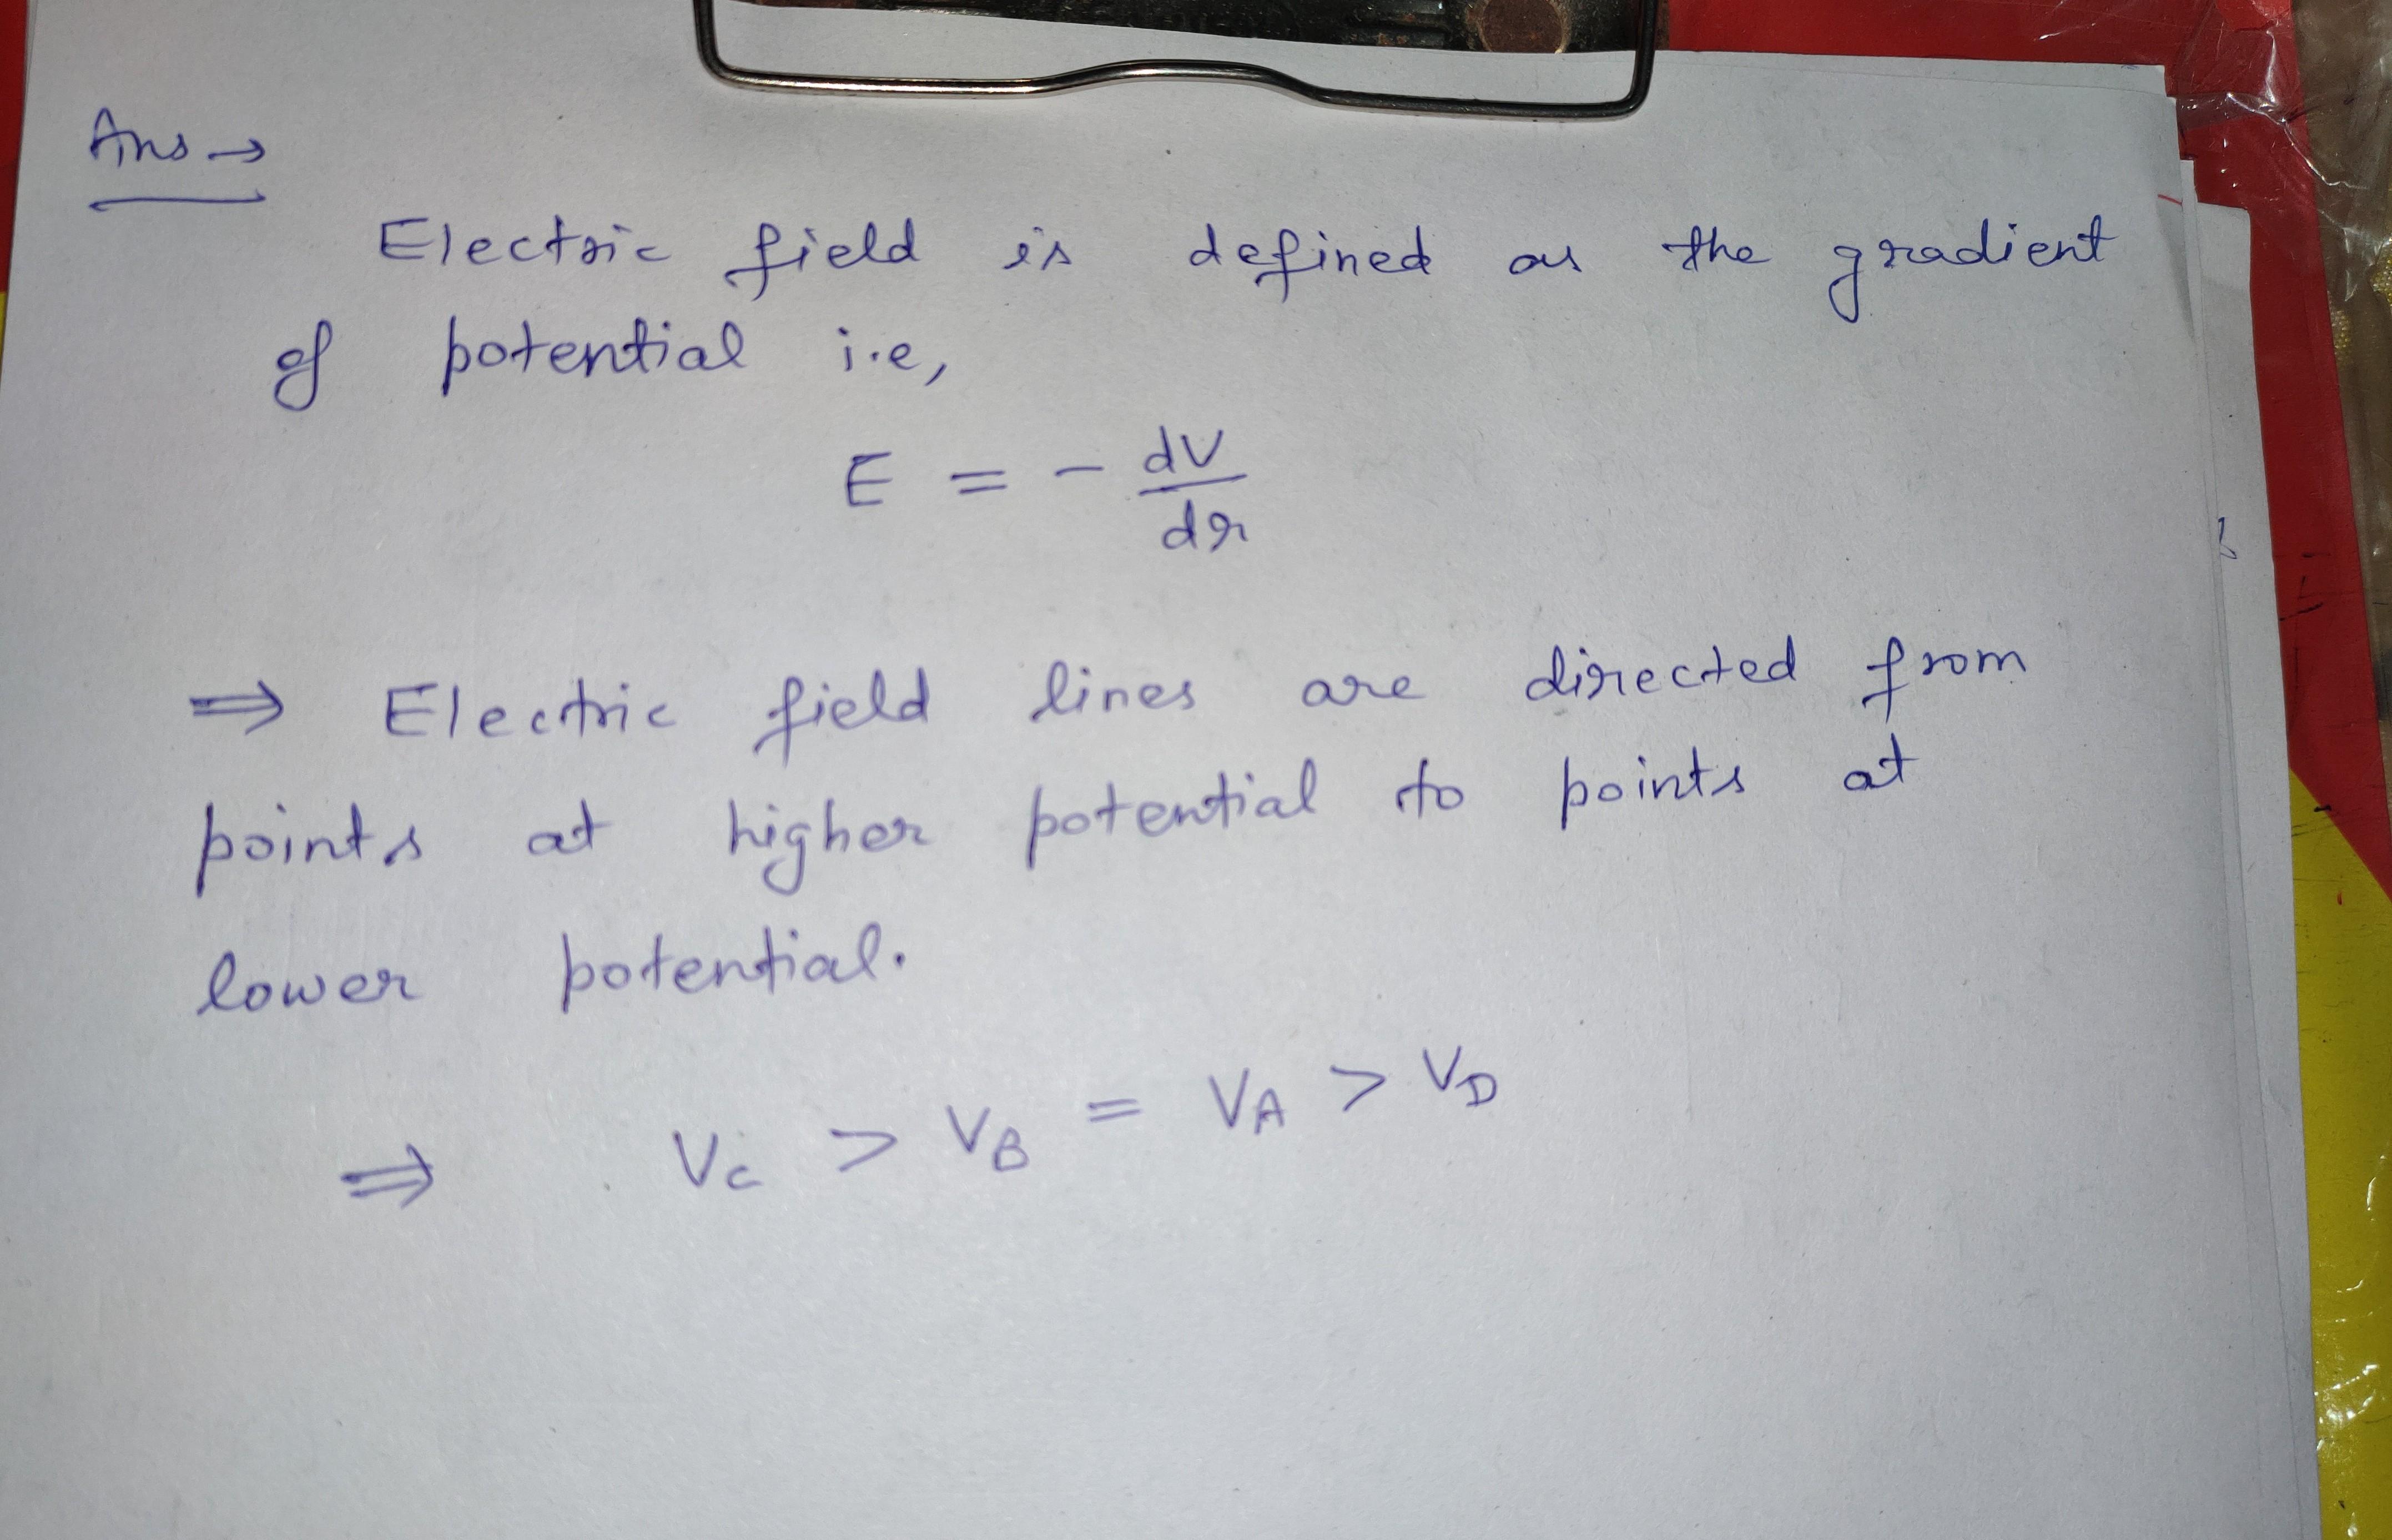 Ans →
Electric field is defined as the gradient
of potential i.e,
E = - dV/dr
⇒ Electric field lines are directed from
points at higher potential to points at
lower potential.
⇒ Vc > VB = VA > VD